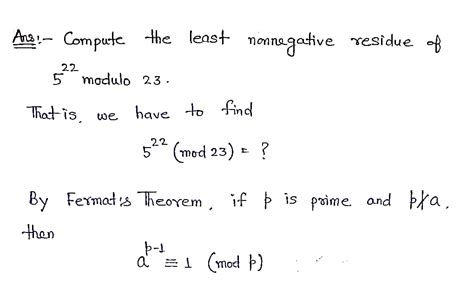 Ans:- Compute the least nonnegative residue of
5^22 modulo 23.
That is, we have to find
5^22 (mod 23) = ?
By Fermat's Theorem, if p is prime and p∤a,
then
a^p-1 ≡ 1 (mod p)